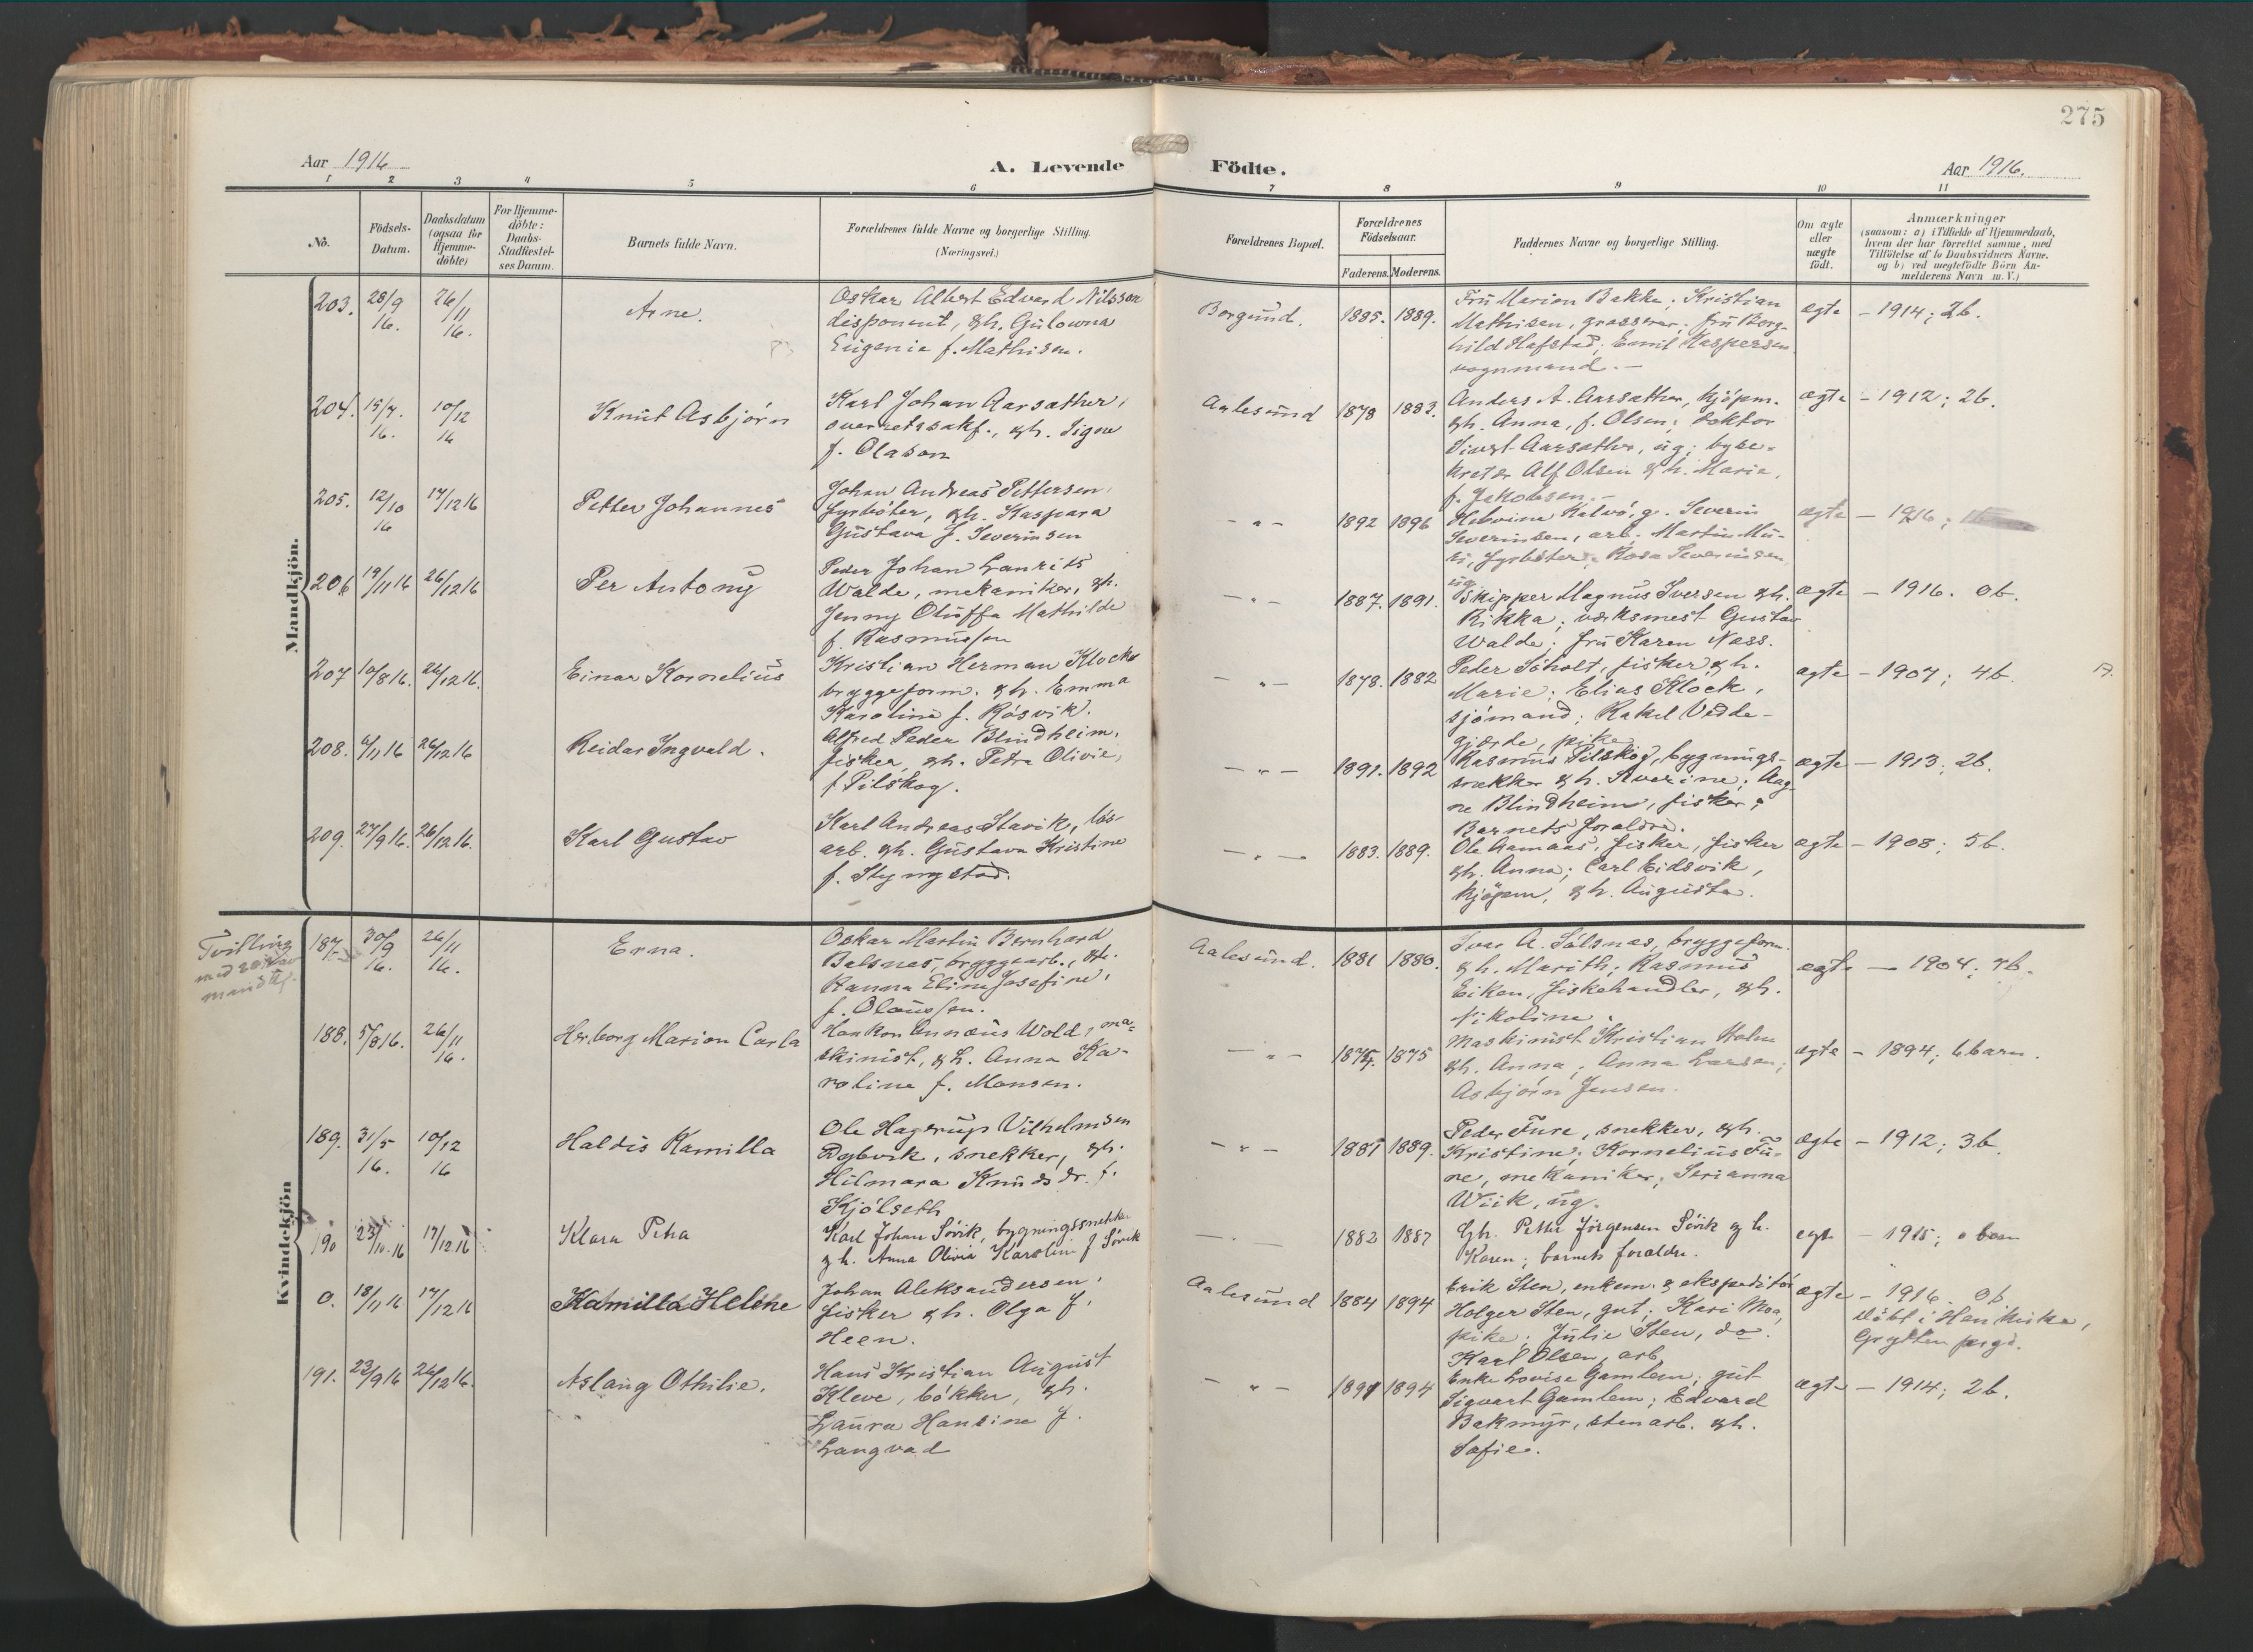 275
Aar 1916
A. Levende Födte.
Aar 1916.
1 2 3 4 5 6 7 8 9 10 11
No.
Födsels-Datum.
Daabsdatum (ogsaa for Hjemme-döbte)
For Hjemme-döbte: Daabs-Stadfestel-ses Datum.
Barnets fulde Navn.
Forældrenes fulde Navne og borgerlige Stilling. (Næringsvei.)
Forældrenes Bopæl.
Forældrenes Födselsaar.
Faderens. Moderens.
Faddernes Navne og borgerlige Stilling.
Om ægte eller uægte födt.
Anmærkninger
(saasom: a) i Tilfælde af Hjemmedaab,
hvem der har forrettet samme, med
Tilföielse af to Daabsvidners Navne.
og b) ved uægtefödte Börn An-
melderens Navn m. V.)
Mandkjön.
203. 28/9 16. 26/11 16. Arne.
Oskar Albert Edvard Nilsson
disponent, &h. Gulowna
Eugenie f. Mathisen.
Borgund. 1885. 1889.
Fru Marion Bakke; Kristian
Mathisen, grosserer; fru Borg-
hild Hafstad; Emil Kaspersen
vognmand. -
ægte - 1914; 2b.
204. 15/7. 16. 10/12 16 Knut Asbjörn
Karl Johan Aarsæther,
overretssakf., &h. Signe
f. Olason
Aalesund 1878 1883.
Anders A. Aarsæther, kjöpm.
&h. Anna, f. Olsen; doktor
Sivert Aarsæther, ug; byse-
kretær Alf Olsen &h. Marie,
f. Jakobsen. -
ægte - 1912; 2b.
205. 12/10 16 17/12 16 Petter Johannes
Johan Andreas Pettersen,
fyrböter, &h. Kaspara
Gustava f. Severinsen
- " - 1892 1896
Kalvö, g. Severin
Severinsen, arb. Martin Mu-
ri, fyrböter; Rosa Severinsen
ug
ægte - 1916;
206 19/11 16 26/12 16 Per Antony
Peder Johan Laurits
Walde, mekaniker, &h.
Jenny Oluffa Mathilde
f. Rasmussen
- " - 1887. 1891.
Skipper Magnus Iversen &h.
Rikka; værksmest Gustav
Walde; fru Karen Nass.
ægte - 1916. 0b.
207 10/8 16. 26/12 16. Einar Kornelius
Kristian Herman Klock
bryggeform. &h. Emma
Karoline f. Rösvik.
- " - 1878. 1882
Peder Söholt, fisker &h.
Marie; Elias Klock,
sjömand; Rakel Vedde-
gjærde, pike
ægte - 1907; 4b.
208. 6/11 16 26/12 16 Reidar Ingvald.
Alfred Peder Blindheim,
fisker, &h. Petra Olivie,
f Pilskog.
- " - 1891. 1892
Rasmus Pilskog, bygnings-
snekker &h. Severine; Aag-
ne Blindheim, fisker &
Barnets foraldre.
ægte - 1913; 2b.
209. 27/9 16. 26/12 16. Karl Gustav
Karl Andreas Stavik, lös-
arb. &h. Gustava Kristine
f.
- " - 1883. 1889.
Ole Aamaas, fisker, fisker
&h. Anna; Carl Eidsvik,
kjöpm, &h. Augusta.
ægte - 1908; 5b.
Kvindekjön
Tvilling
med
mandkj.
187. 30/9 16. 26/11 16. Erna.
Oskar Martin Bernhard
Balsnes, bryggearb., &h.
Hanna Eline Josefine,
f. Olaussen.
Aalesund. 1881 1880.
Ivar A. Sölsnæs, bryggeform.
&h. Marith; Rasmus
Eiken, fiskehandler, &h.
Nikoline.
ægte - 1904;
188. 5/8 16. 26/11 16. Herborg Marion Carla
Haakon Annæus Wold, ma-
skinist, &h. Anna Ka-
roline f. Monsen.
- " - 1874. 1875
Maskinist Kristian Holm
&h. Anna; Anna Larsen;
Asbjörn Jensen.
ægte - 1894; 6 barn.
189. 31/5 16. 10/12 16 Haldis Kamilla
Ole Hagerup Vilhelmsen
Dybvik, snekker, &h.
Hilmara Knudsdr. f.
Kjölseth
- " - 1881 1889.
Peder Fure, snekker, &h.
Kristine; Kornelius Fu-
re, mekaniker; Serianna
Wiik, ug.
ægte - 1912; 3b.
190 23/10 16 17/12 16 Klara Petra
Karl Johan Sövik, bygningssnekker
&h. Anna Olivia Karolin f Sövik
- " - 1882 1887
Gbr. Petter Jörgensen Sövik &h.
Karen; barnets foraldre.
egte - 1915; 0 barn
0. 18/11 16 17/12 16 Kamilla Helene
Johan Aleksandersen,
fisker &h. Olga f.
Heen.
Aalesund 1884 1894
Erik Sten, enkem. & ekspeditör
Holger Sten, gut; Kari Moa,
pike; Julie Sten, do.
Karl Olsen, arb.
ægte - 1916. 0b
döbt i Hen kirke,
Grytten prgd.
191. 23/9 16 26/12 16. Aslaug Othilie.
Hans Kristian August
Kleve, bökker, &h.
Laura Hansine f.
Langvad
- " - 1891 1894
Enke Lovise Gamlem; gut
Sigvart Gamlem; Edvard
Bakmyr, stenarb. &h.
Sofie.
ægte - 1914; 2b.